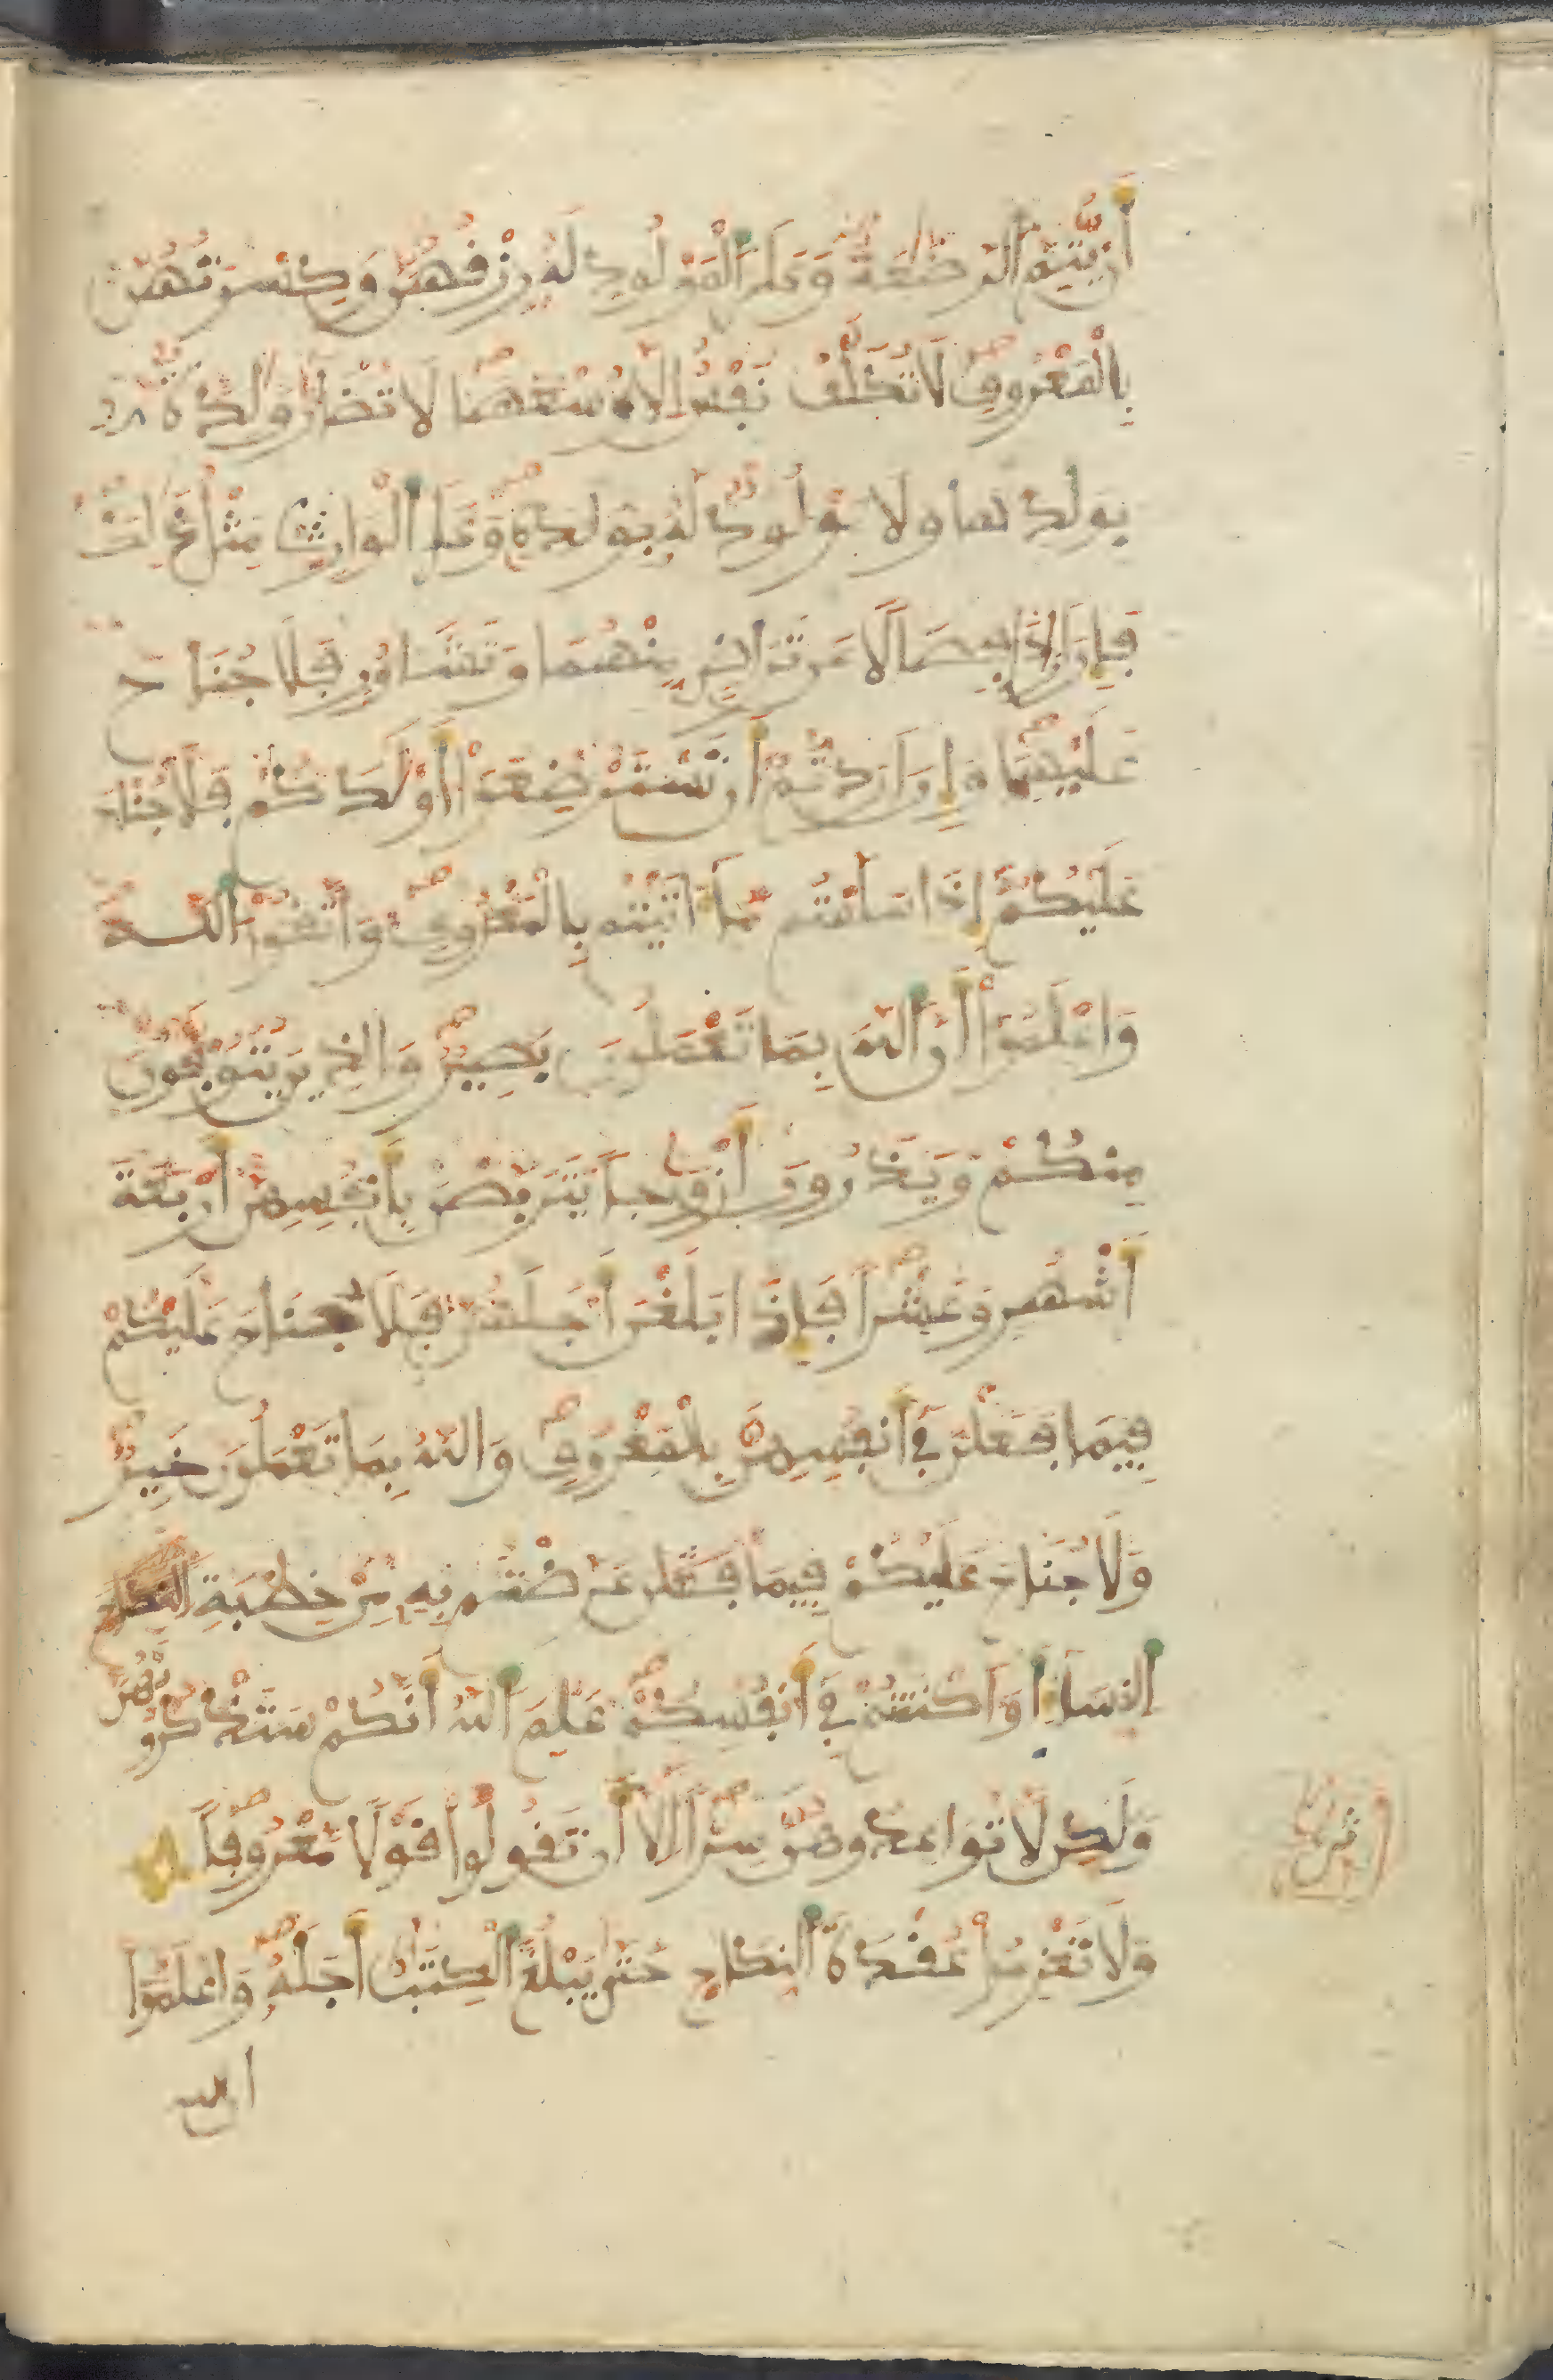 أَنْ يُّتِمَّ اَ۬لرَّضَٰعَةَ وَعَلَي اَ۬لْمَوْلُودِ لَهُۥ رِزْقُهُنَّ وَكِسْوَتُهُنَّ
بِالْمَعْرُوفِ لَا تُكَلَّفُ نَفْسٌ اِلَّا وُسْعَهَا لَا تُضَآرَّ وَٰلِدَةُۢ
بِوَلَدِهَا وَلَا مَوْلُودٌ لَّهُۥ بِوَلَدِهِۦ وَعَلَي اَ۬لْوَارِثِ مِثْلُ ذَٰلِكَ
فَإِنَ اَرَادَا فِصَالًا عَن تَرَاضٍ مِّنْهُمَا وَتَشَاوُرٍ فَلَا جُنَاحَ
عَلَيْهِمَا وَإِنَ اَرَدتُّمُۥٓ أَن تَسْتَرْضِعُوٓاْ أَوْلَٰدَكُمْ فَلَا جُنَاحَ
عَلَيْكُمُۥٓ إِذَا سَلَّمْتُم مَّآ ءَاتَيْتُم بِالْمَعْرُوفِ وَاتَّقُواْ اُ۬للَّهَ
وَاعْلَمُوٓاْ أَنَّ اَ۬للَّهَ بِمَا تَعْمَلُونَ بَصِيرٌ وَالذِينَ يُتَوَفَّوْنَ
مِنكُمْ وَيَذَرُونَ أَزْوَٰجاً يَتَرَبَّصْنَ بِأَنفُسِهِنَّ أَرْبَعَةَ
أَشْهُرٍ وَعَشْراً فَإِذَا بَلَغْنَ أَجَلَهُنَّ فَلَا جُنَاحَ عَلَيْكُمْ
فِيمَا فَعَلْنَ فِيٓ أَنفُسِهِنَّ بِالْمَعْرُوفِ وَاللَّهُ بِمَا تَعْمَلُونَ خَبِيرٌ
وَلَا جُنَاحَ عَلَيْكُمْ فِيمَا فعلن عَرَّضْتُم بِهِۦ مِنْ خِطْبَةِ النكاح
اِ۬لنِّسَآءِ اَ۬وَ اَكْنَنتُمْ فِيٓ أَنفُسِكُمْ عَلِمَ اَ۬للَّهُ أَنَّكُمْ سَتَذْكُرُونَهُنَّ
وَلَٰكِن لَّا تُوَاعِدُوهُنَّ سِرّاً اِلَّآ أَن تَقُولُواْ قَوْلًا مَّعْرُوفاً
وَلَا تَعْزِمُواْ عُقْدَةَ اَ۬لنِّكَاحِ حَتَّيٰ يَبْلُغَ اَ۬لْكِتَٰبُ أَجَلَهُۥ وَاعْلَمُوٓاْ
ان الله